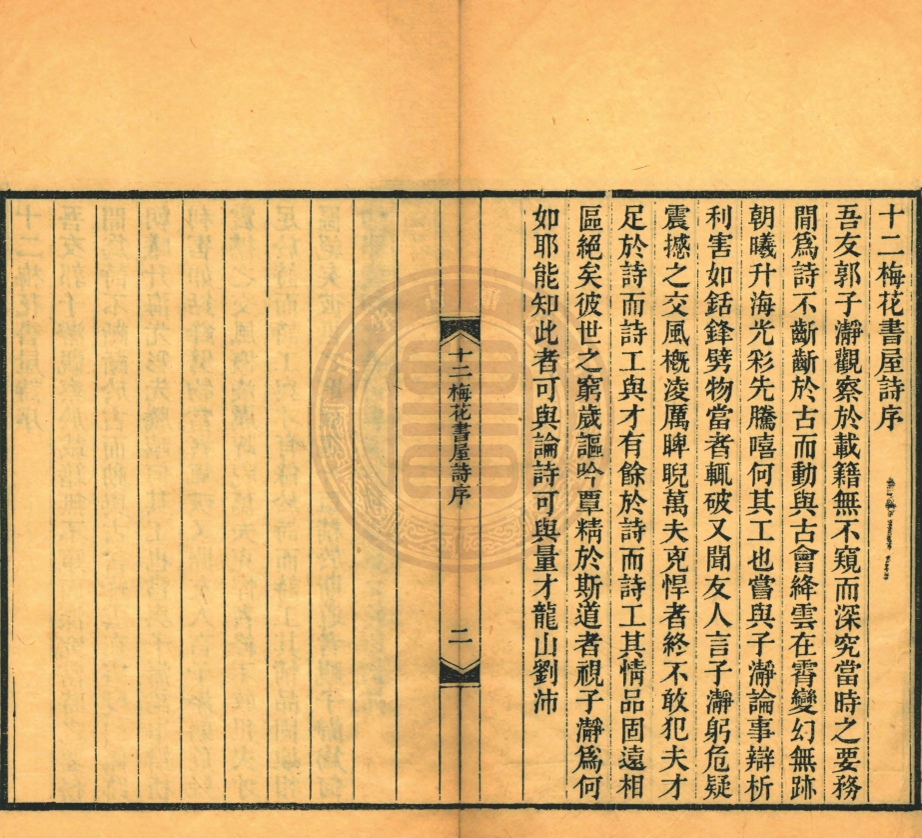 十二梅花書屋詩序
吾友郭子瀞觀察於載籍無不窺而深究當時之要務
閒爲詩不斷斷於古而動與古會絳雲在霄變幻無跡
朝曦升海光彩先騰嘻何其工也嘗與子瀞論事辯析
利害如銛鋒劈物當者輒破又聞友人言子瀞躬危疑
震撼之交風概淩厲睥睨萬夫克悍者終不敢犯夫才
足於詩而詩工與才有餘於詩而詩工其情品固遠相
區絕矣彼世之窮歲謳吟覃精於斯道者視子瀞爲何
如耶能知此者可與論詩可與量才龍山劉沛
十二梅花書屋詩序
二